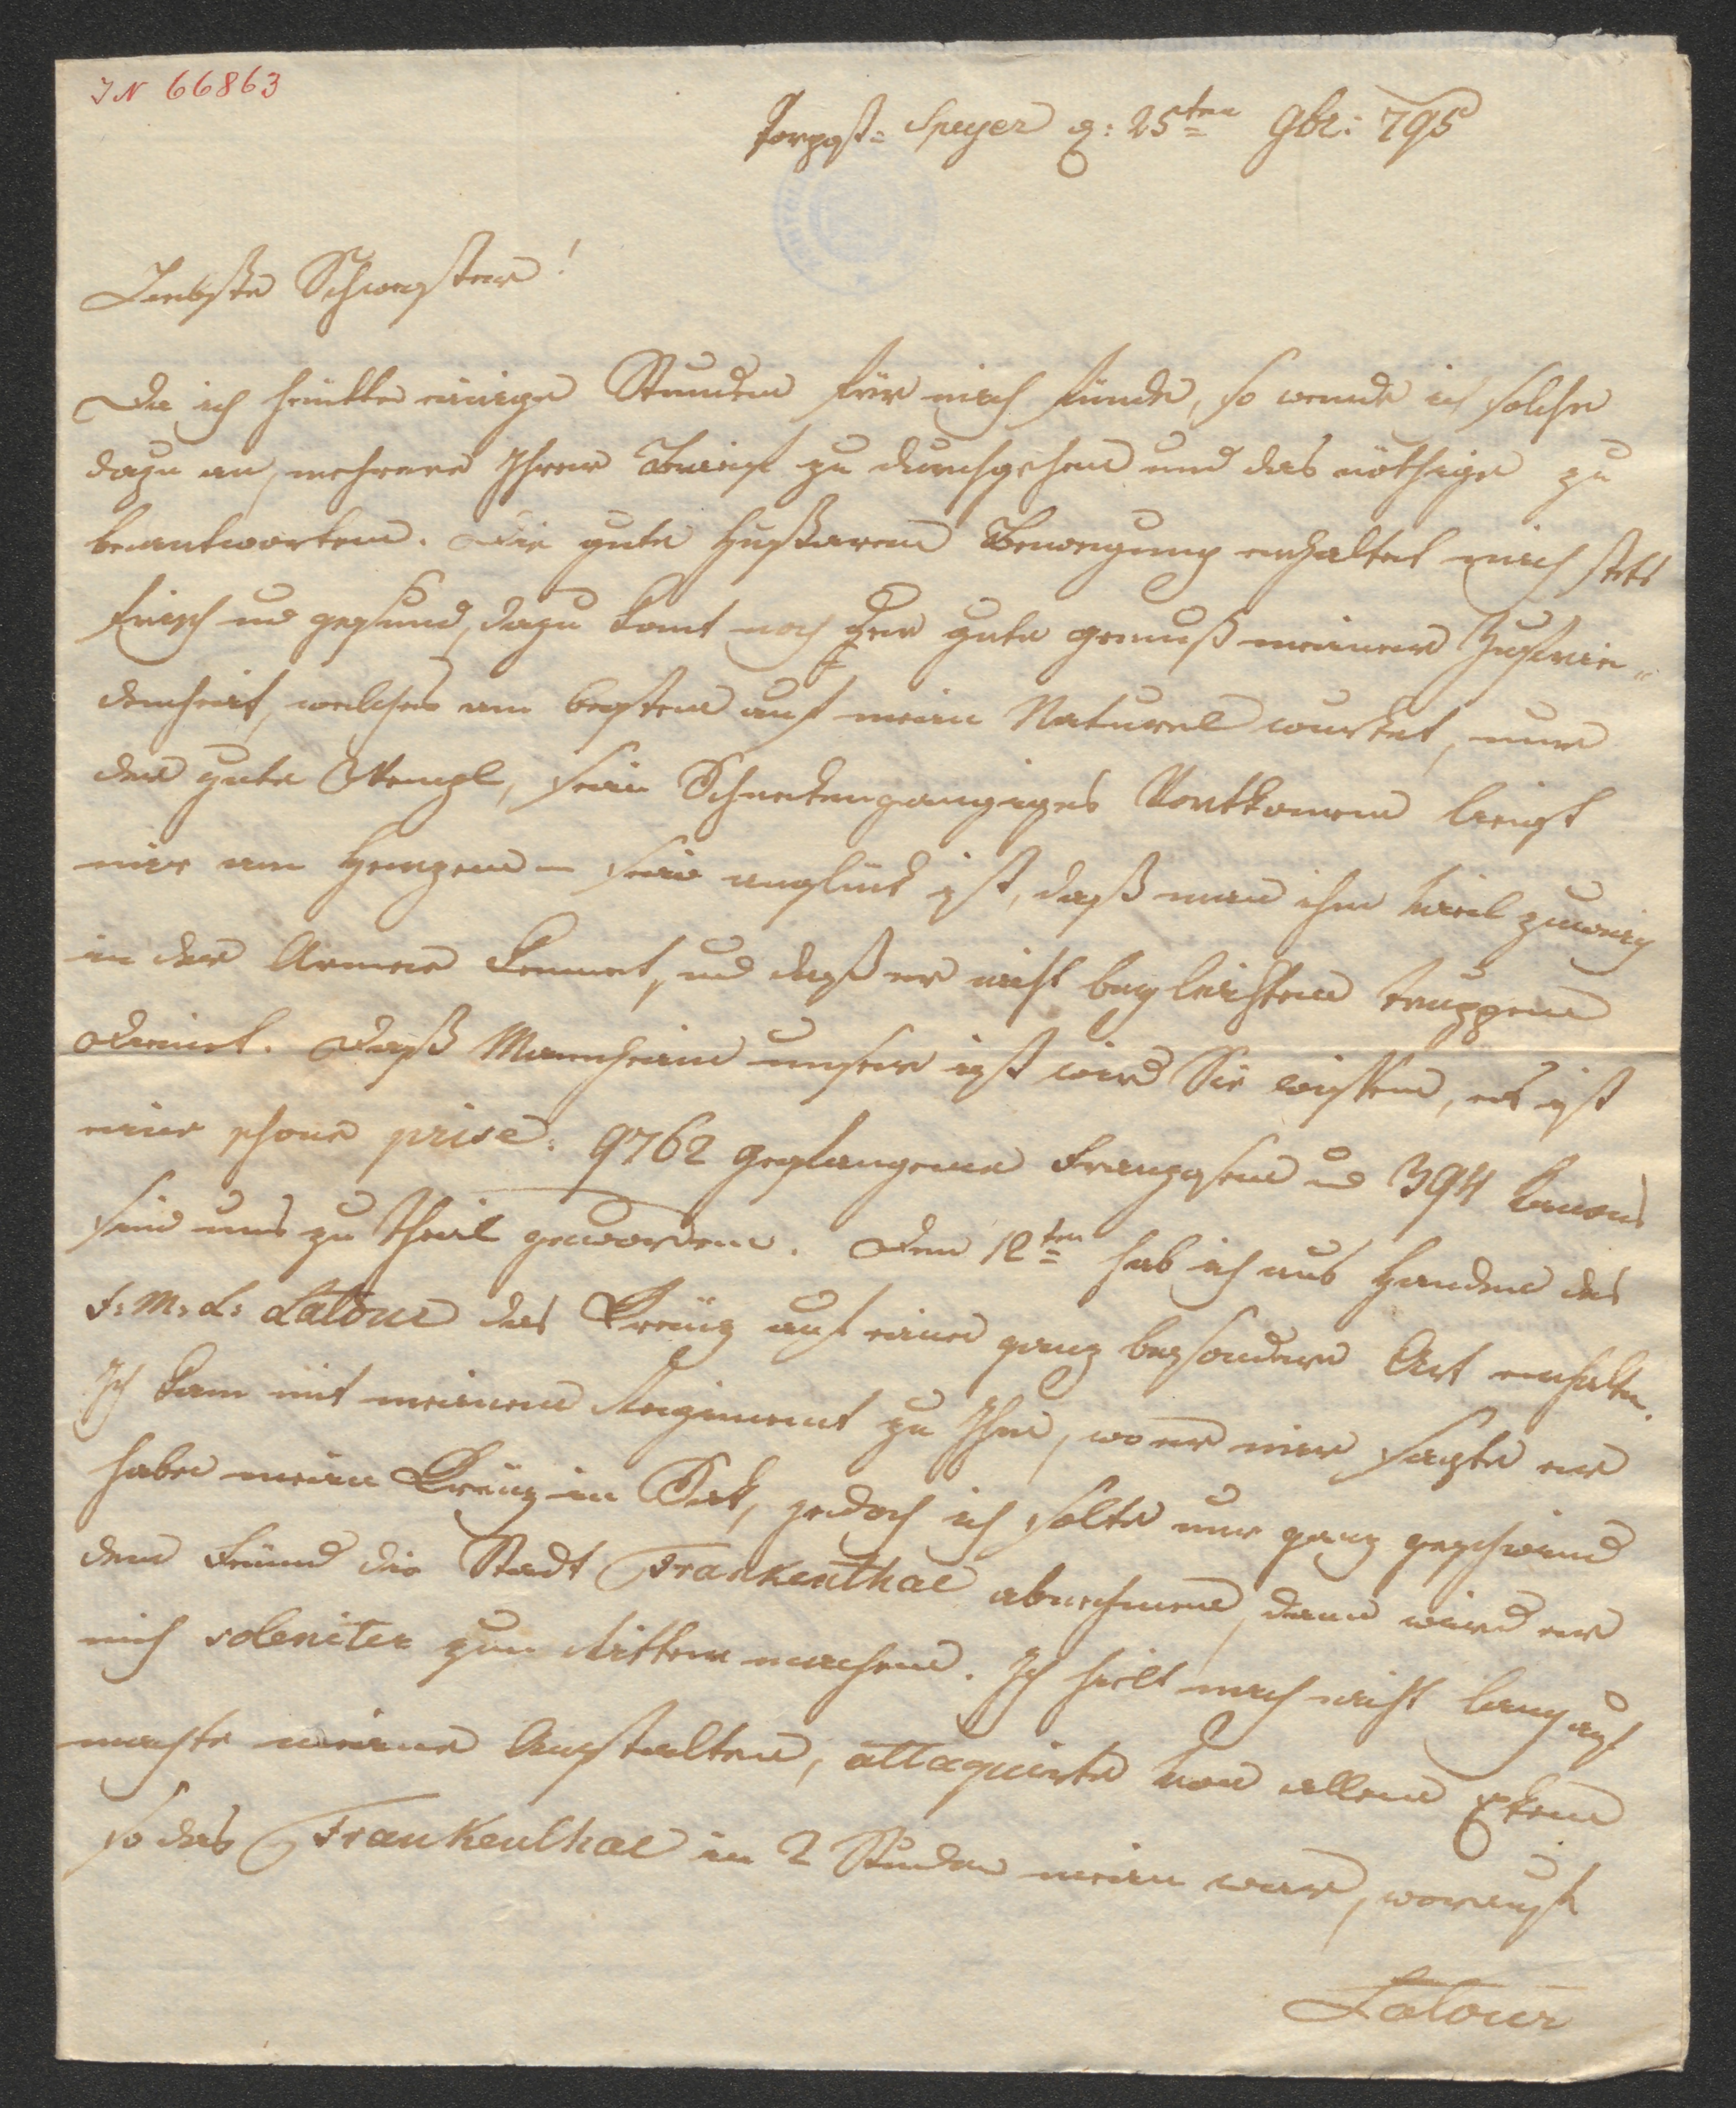 IN 66863
Speyer d: 25ten 9br: 795
Liebste Schwester!
Da ich heutte einige Stunden für mich fünde, so wende ich solche
dazu an, mehrere Ihrer Briefe zu durchgehen und das nöthige zu
beantworten. Die gute Hußaren Bewegung erhaltet mich stets
frisch und gesund, dazu komt noch der gute genuß meiner Zufrie„
denheit, welches am besten auf mein Naturel würket, nur
der gute Stengl, sein Schnekengangiges Vortkomen liegt
mir am Herzen – sein unglück ist, daß man ihn viel zuwenig
in der Armee kennet, und daß er nicht bey leichten truppen
dienet. Daß Mannheim unser ist wird Sie wissen, es ist
eine schöne prise: 9762 gefangene Franzosen und 394 Canons
sind uns zu theil geworden. Den 12ten hab ich aus Handen des
F: M: L: Latour das Kreüz auf eine ganz besondere Art erhalten.
Ich kam mit meinem Regiment zu Ihm, wo er mir sagte er
habe mein Kreüz in Sak, jedoch ich solte nur ganz geschwind
dem Feind die Stadt Frankenthal abnehmen, dann wird er
mich soleniter zum Ritter machen. Ich hielt mich nicht lang auf
machte meine Anstalten, attaquirte von allen Eken
so das Frankenthal in 2 Stunden mein war, worauf
Latour